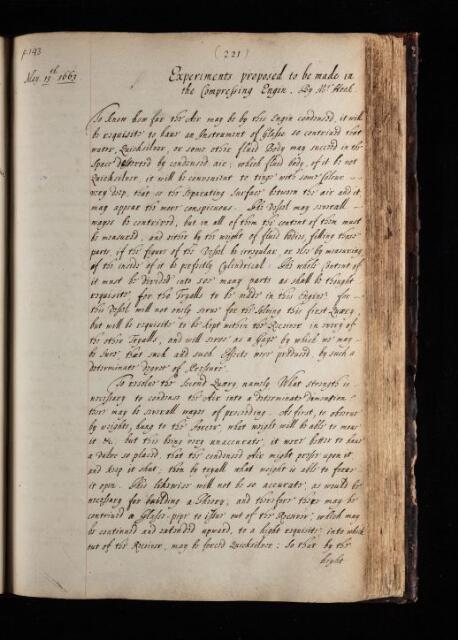 f.143
(221)
May. 13th 1663
Experiments proposed to be made in
the Compressing Engin. By Mr Hook.
To know how far the Air may be by this Engin condensed, it will
be requisite to have an Instrument of Glasse so contrived that
water, Quicksilver, or some other fluid Body may succeed in the
Space deserted by condensed air; which fluid body, if it be not
Quicksilver, it will be convenient to tinge with some colour
very deep, that so the Separating Surface between the air and it,
may appear the more conspicuous. This Vessel may severall
wayes be contrived, but in all of them the content of them must
be measured, and either by the weight of fluid bodies, filling those
parts, if the figure of the Vessel be irregular, or els by measuring
of the inside if it be perfectly Cylindrical. This whole Content of
it must be divided into soe many parts as shall be thought
requisite, for the Tryalls to be made in this Engine. for
this Vessel will not only serve for the Solving this first Quæry,
but will be requisite to be kept within the Receiver in every of
the other Tryalls, and will serve as a Gage by which we may
be Sure, that such and such Effects were produced, by such a
determinate degree of Pressure.
To resolve the Second Quæry, namely What strength is
necessary to condense the Air into a determinate Dimention:
there may be severall wayes of proceeding. As first, to observe
by weights, hung to the forcer, what weight will be able to move
it &c. but this being very unaccurate, it were better to have
a Valve so placed, that the condensed Air might presse upon it,
and keep it shut; then by tryall what weight is able to force
it open. This likewise will not be so accurate, as would be
necessary for building a Theory, and therefore there may be
contrived a Glasse-pipe to issue out of the Receiver, which may
be continued and extended upward, to a hight requisite into which
out of the Receiver, may be forced Quicksilver: So that by the
height